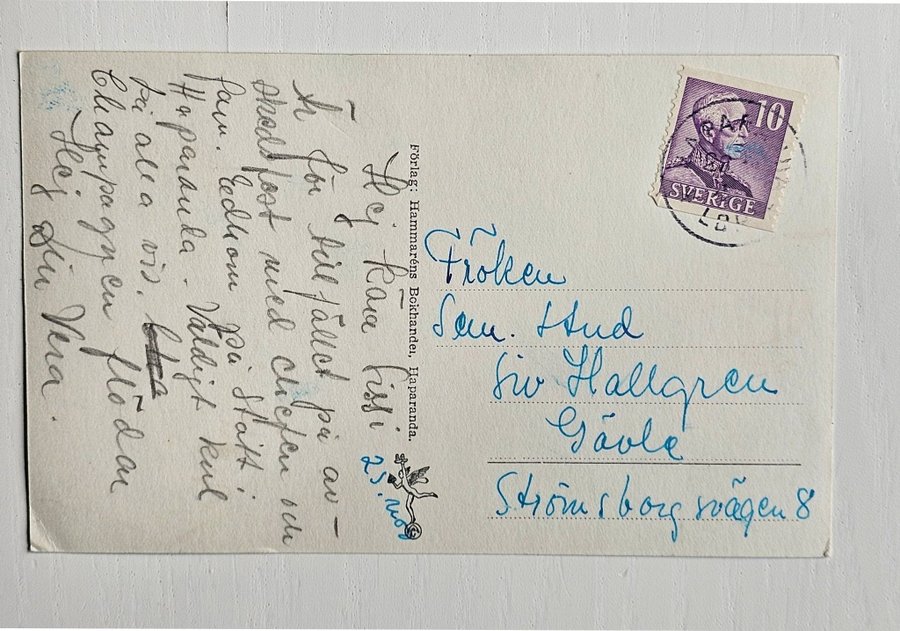 Hej Kära Sissi
Är för tillfället på av-
skedsfest med chefen och
fam. Edhom på Statt i
Haparanda. Väldigt kul
på alla vis.
Champagnen flödar
Hej Din Vera.
25. nov
Förlag: Hammaréns Bokhandel, Haparanda.
10
SVERIGE
Fröken
Sem. Stud
Siv Hallgren
Gävle
Strömsborgsvägen 8